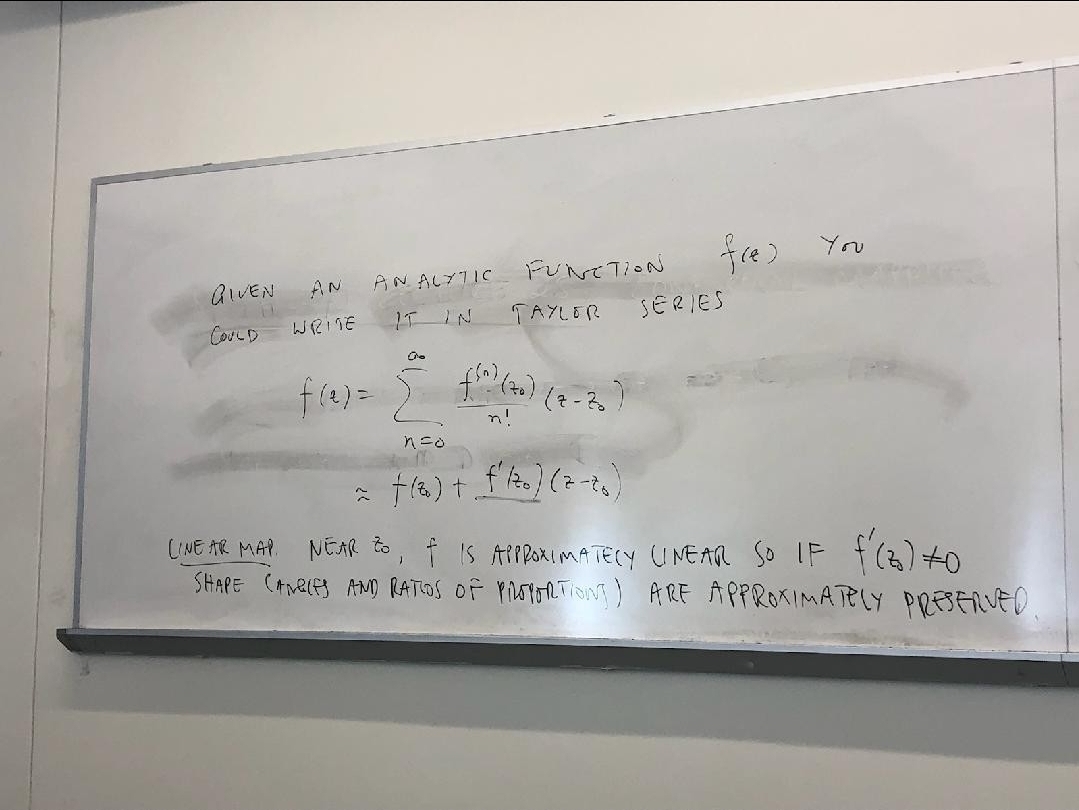 GIVEN AN ANALYTIC FUNCTION f(z) YOU
COULD WRITE IT IN TAYLOR SERIES
f(z) = ∑_{n=0}^{∞} \frac{f^{(n)}(z_0)}{n!} (z-z_0)
≈ f(z_0) + f'(z_0) (z-z_0)
LINEAR MAP. NEAR z_0, f IS APPROXIMATELY LINEAR SO IF f'(z_0) ≠ 0
SHAPE (ANGLES AND RATIOS OF PROPORTIONS) ARE APPROXIMATELY PRESERVED.